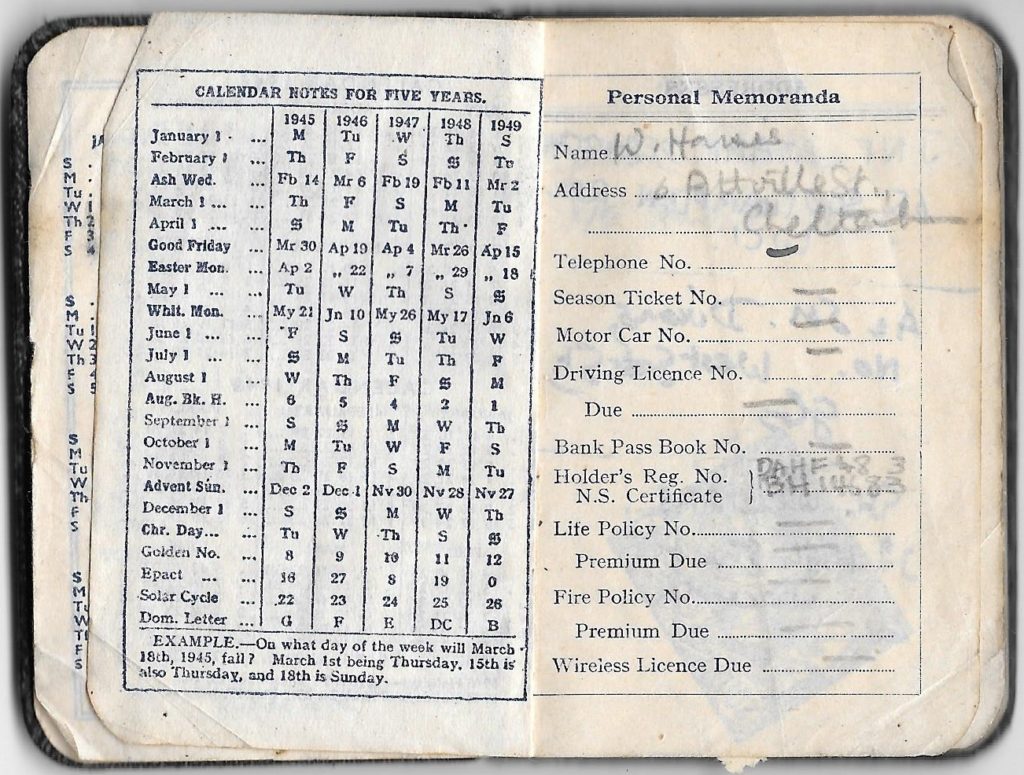 CALENDAR NOTES FOR FIVE YEARS.
1945 1946 1947 1948 1949
January 1 ... M Tu W Th S
February 1 ... Th F S S Tu
Ash Wed. ... Fb 14 Mr 6 Fb 19 Fb 11 Mr 2
March 1 ... ... Th F S M Tu
April 1 ... ... S M Tu Th F
Good Friday ... Mr 30 Ap 19 Ap 4 Mr 26 Ap 15
Easter Mon. ... Ap 2 „ 22 „ 7 „ 29 „ 18
May 1 ... ... Tu W Th S S
Whit. Mon. ... My 21 Jn 10 My 26 My 17 Jn 6
June 1 ... ... F S S Tu W
July 1 ... ... S M Tu Th F
August 1 ... W Th F S M
Aug. Bk. H. ... 6 5 4 2 1
September 1 ... S S M W Th
October 1 ... M Tu W F S
November 1 ... Th F S M Tu
Advent Sun. ... Dec 2 Dec 1 Nv 30 Nv 28 Nv 27
December 1 ... S S M W Th
Chr. Day... ... Tu W Th S S
Golden No. ... 8 9 10 11 12
Epact ... ... 16 27 8 19 0
Solar Cycle ... 22 23 24 25 26
Dom. Letter ... G F E DC B
EXAMPLE.—On what day of the week will March
18th, 1945, fall? March 1st being Thursday, 15th is
also Thursday, and 18th is Sunday.
Personal Memoranda
Name W.
Address
Telephone No.
Season Ticket No.
Motor Car No.
Driving Licence No.
Due
Bank Pass Book No.
Holder's Reg. No.
N.S. Certificate
Life Policy No.
Premium Due
Fire Policy No.
Premium Due
Wireless Licence Due